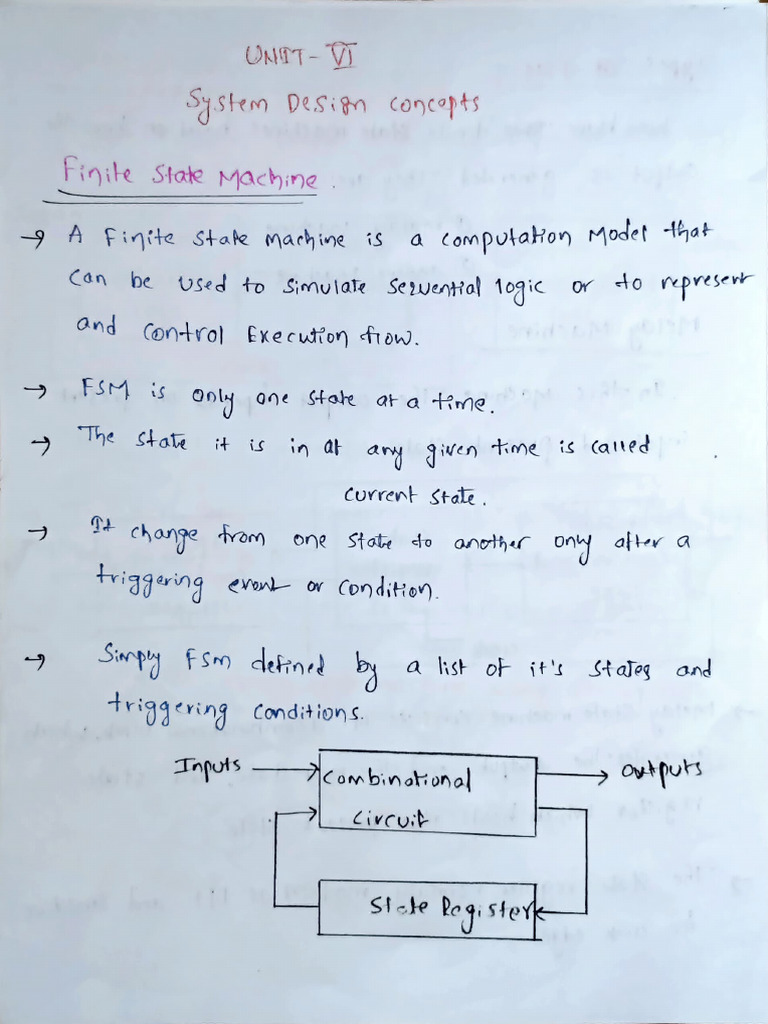 UNIT - VI
System Design concepts
Finite State Machine.
→ A Finite state Machine is a computation Model that
can be used to simulate sequential logic or to represent
and control Execution flow.
→ FSM is only one state at a time.
→ The state it is in at any given time is called
current state.
→ It change from one state to another only after a
triggering event or condition.
→ Simply FSM defined by a list of it's states and
triggering conditions.
Inputs
Combinational
outputs
circuit
State Register